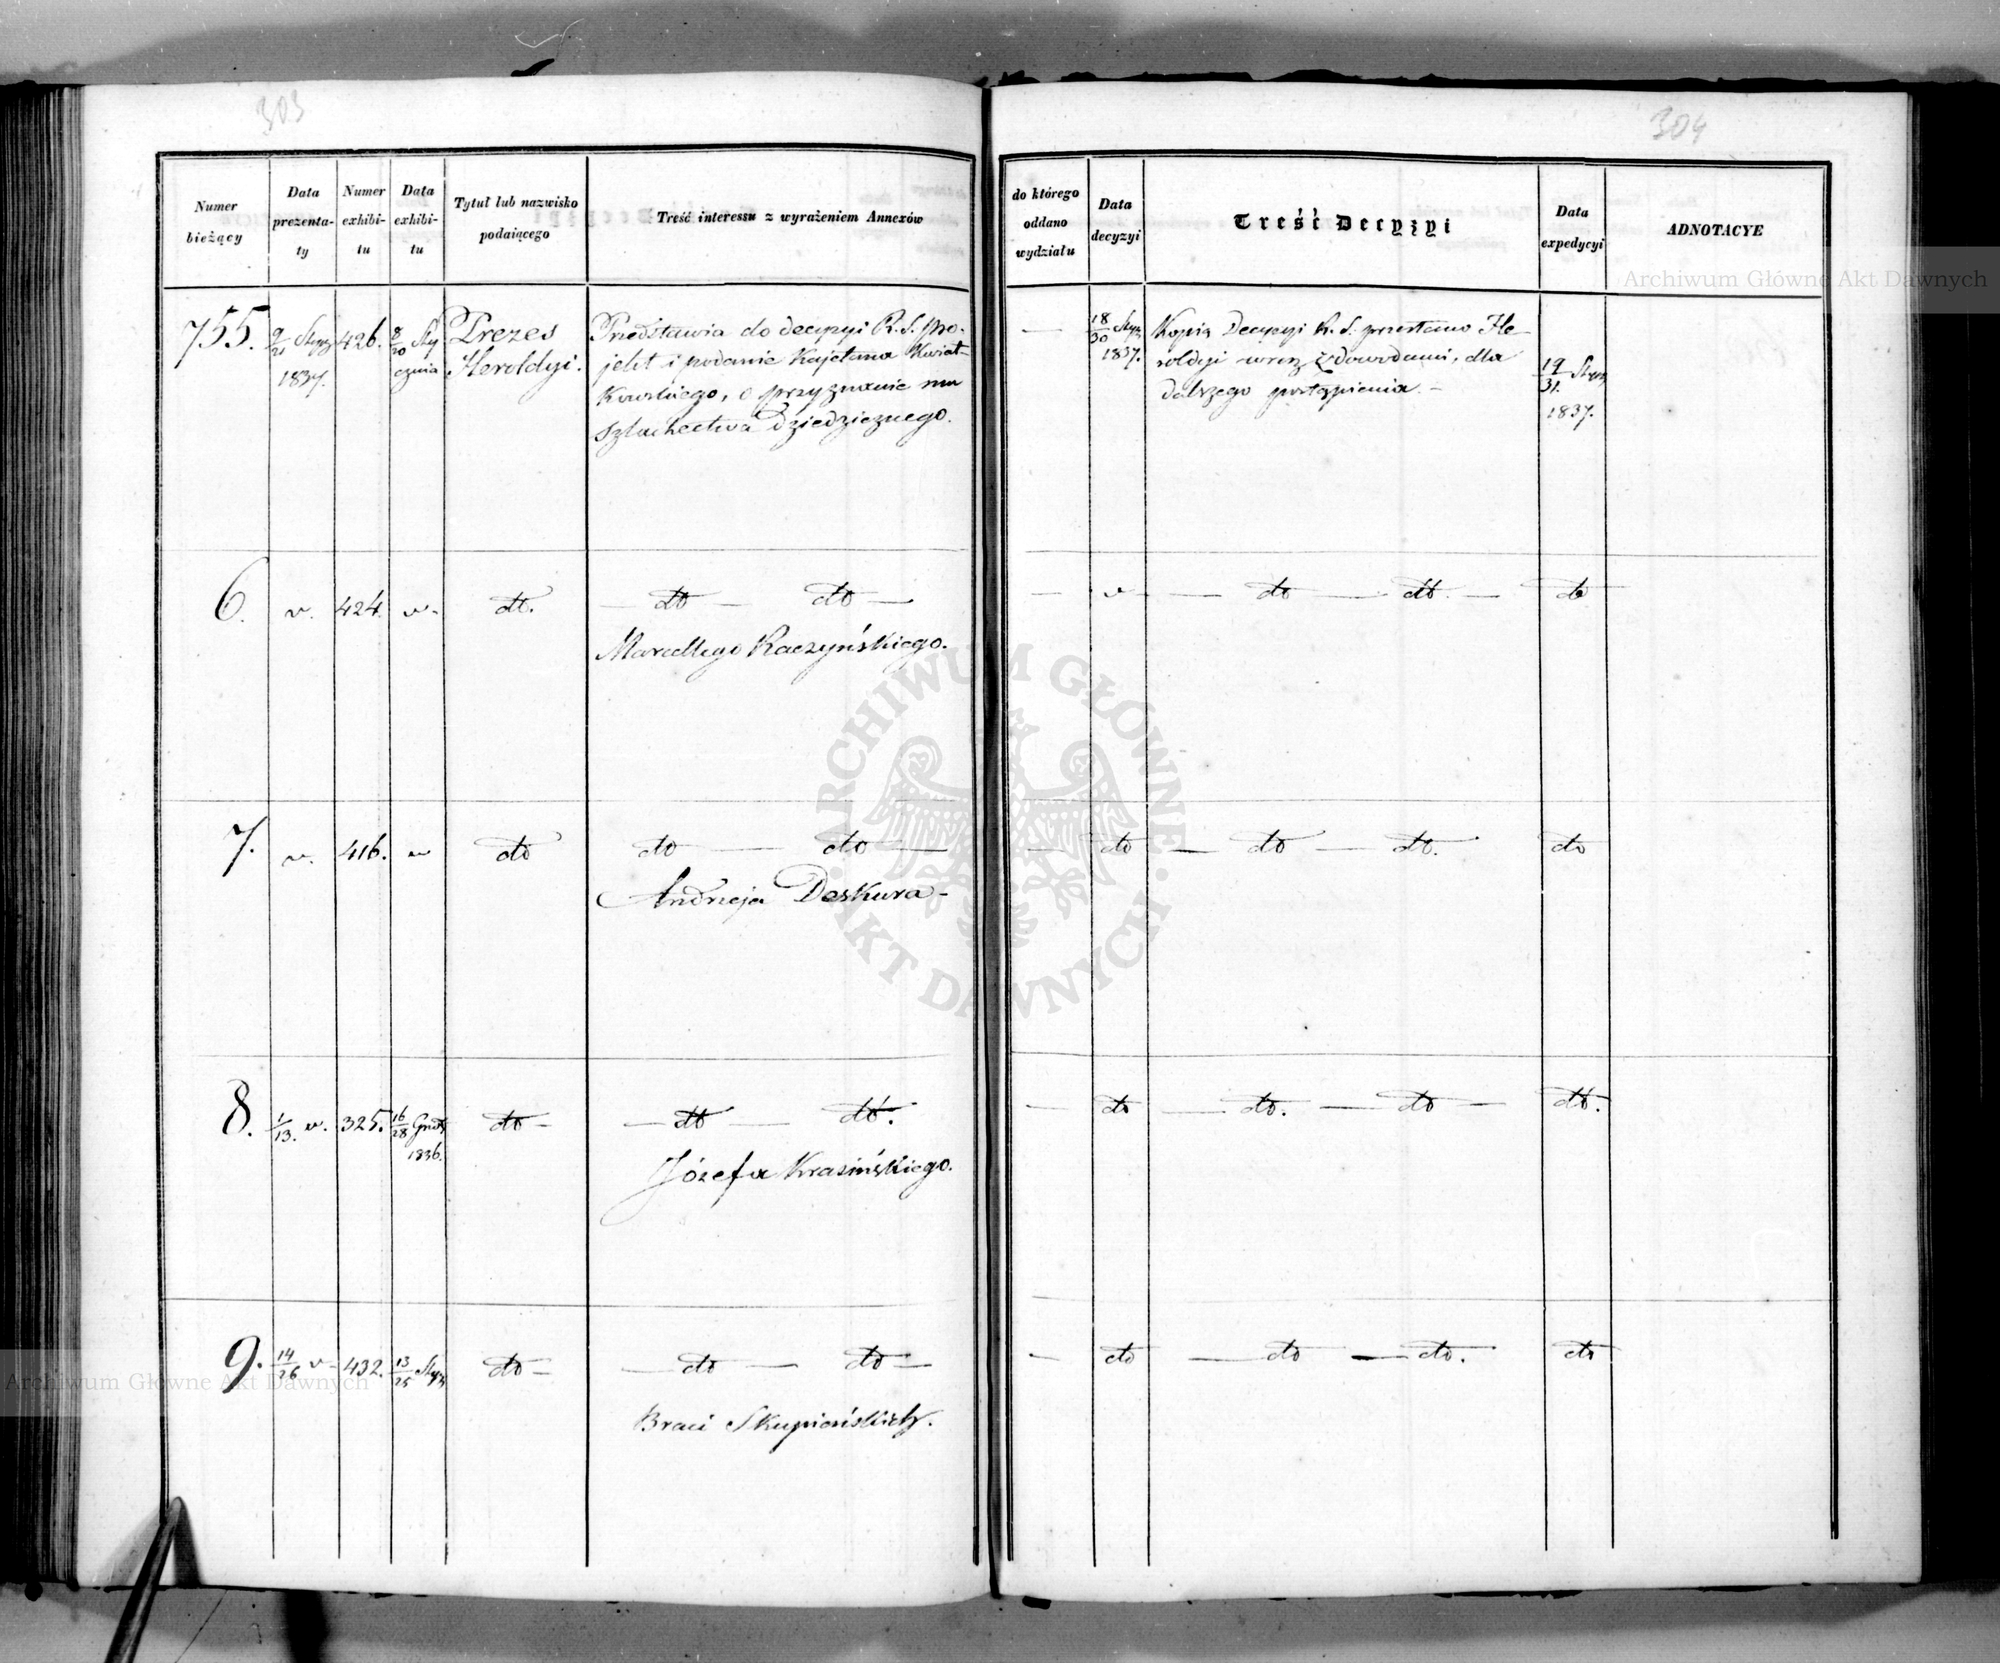 303
Numer
bieżący
Data
prezenta-
ty
Numer
exhibi-
tu
Data
exhibi-
tu
Tytuł lub nazwisko
podaiącego
Treść interessu z wyrażeniem Annexów
755.
9/21 Stycz
1837.
426.
8/20 Sty
cznia
Prezes
Heroldyi.
Przedstawia do decyzyi R. S. pro-
jekt i podanie Kajetana Kwiat-
kowskiego, o przyznanie mu
Szlachectwa dziedzicznego.
6. v. 424. v- dto. — dto — dto —
Marcellego Raczyńskiego.
7. v. 416. v dto dto — dto —
Andrzeja Deskura –
8. 1/13. v. 325. 16/28 Grud.
1836.
dto – — dto — dto.
Józefa Krasińskiego.
9. 14/26 v- 432. 13/25 Stycz dto – — dto — dto –
Braci Skupieńskich.
304
do którego
oddano
wydziału
Data
decyzyi
Treść Decyzyi
Data
expedycyi
ADNOTACYE
—
18/30 Stycz
1837.
Kopią Decyzyi R. S. przesłano He-
roldyi wraz z dowodami, dla
dalszego postąpienia. –
19/31. Stycz
1837.
— v – — dto — dto. — do
— dto — dto — dto. dto
— dto — dto. — dto — dto.
— dto — dto — dto. dto
Archiwum Główne Akt Dawnych
ARCHIWUM GŁÓWNE AKT DAWNYCH
Archiwum Główne Akt Dawnych